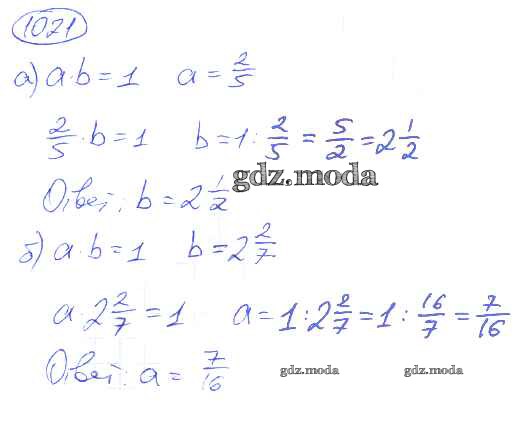 1021
а) a·b = 1 a = 2/5
2/5 · b = 1 b = 1 : 2/5 = 5/2 = 2 1/2
gdz.moda
Ответ: b = 2 1/2
б) a·b = 1 b = 2 2/7
a · 2 2/7 = 1 a = 1 : 2 2/7 = 1 : 16/7 = 7/16
Ответ: a = 7/16
gdz.moda gdz.moda